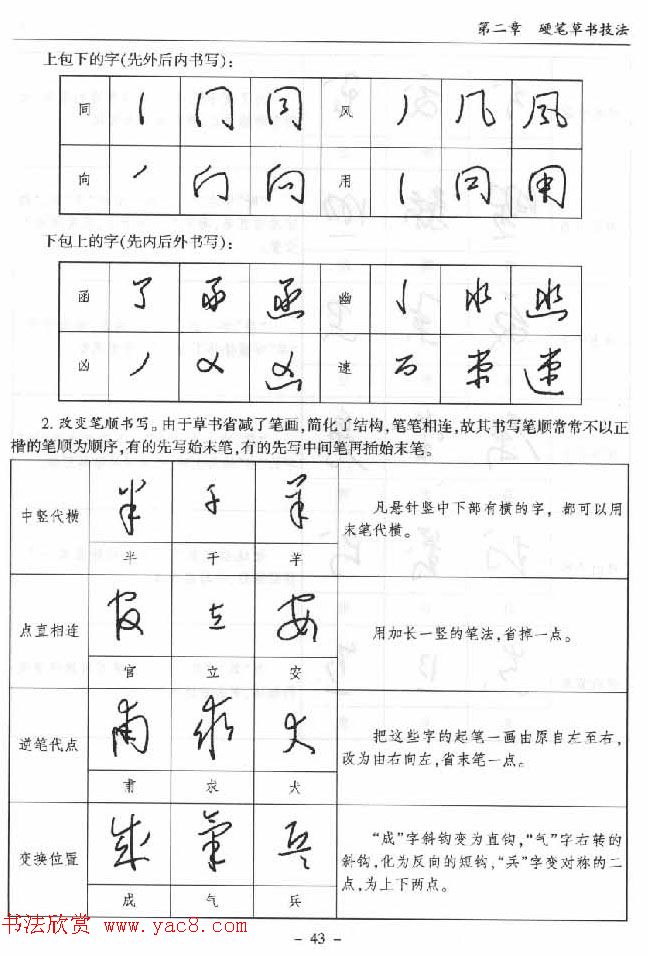 第二章 硬笔草书技法
上包下的字(先外后内书写):
同 风
向 用
下包上的字(先内后外书写):
函 幽
凶 速
2. 改变笔顺书写。由于草书省减了笔画,简化了结构,笔笔相连,故其书写笔顺常常不以正
楷的笔顺为顺序,有的先写始末笔,有的先写中间笔再插始末笔。
中竖代横
半 千 羊
凡悬针竖中下部有横的字，都可以用
末笔代横。
点直相连
官 立 安
用加长一竖的笔法,省掉一点。
逆笔代点
甫 求 犬
把这些字的起笔一画由原自左至右,
改为由右向左,省末笔一点。
变换位置
成 气 兵
“成”字斜钩变为直钩,“气”字右转的
斜钩,化为反向的短钩,“兵”字变对称的二
点,为上下两点。
书法欣赏 www.yac8.com
- 43 -